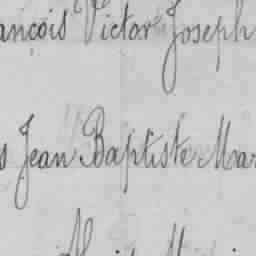 ançois Victor Joseph
s Jean Baptiste Mar